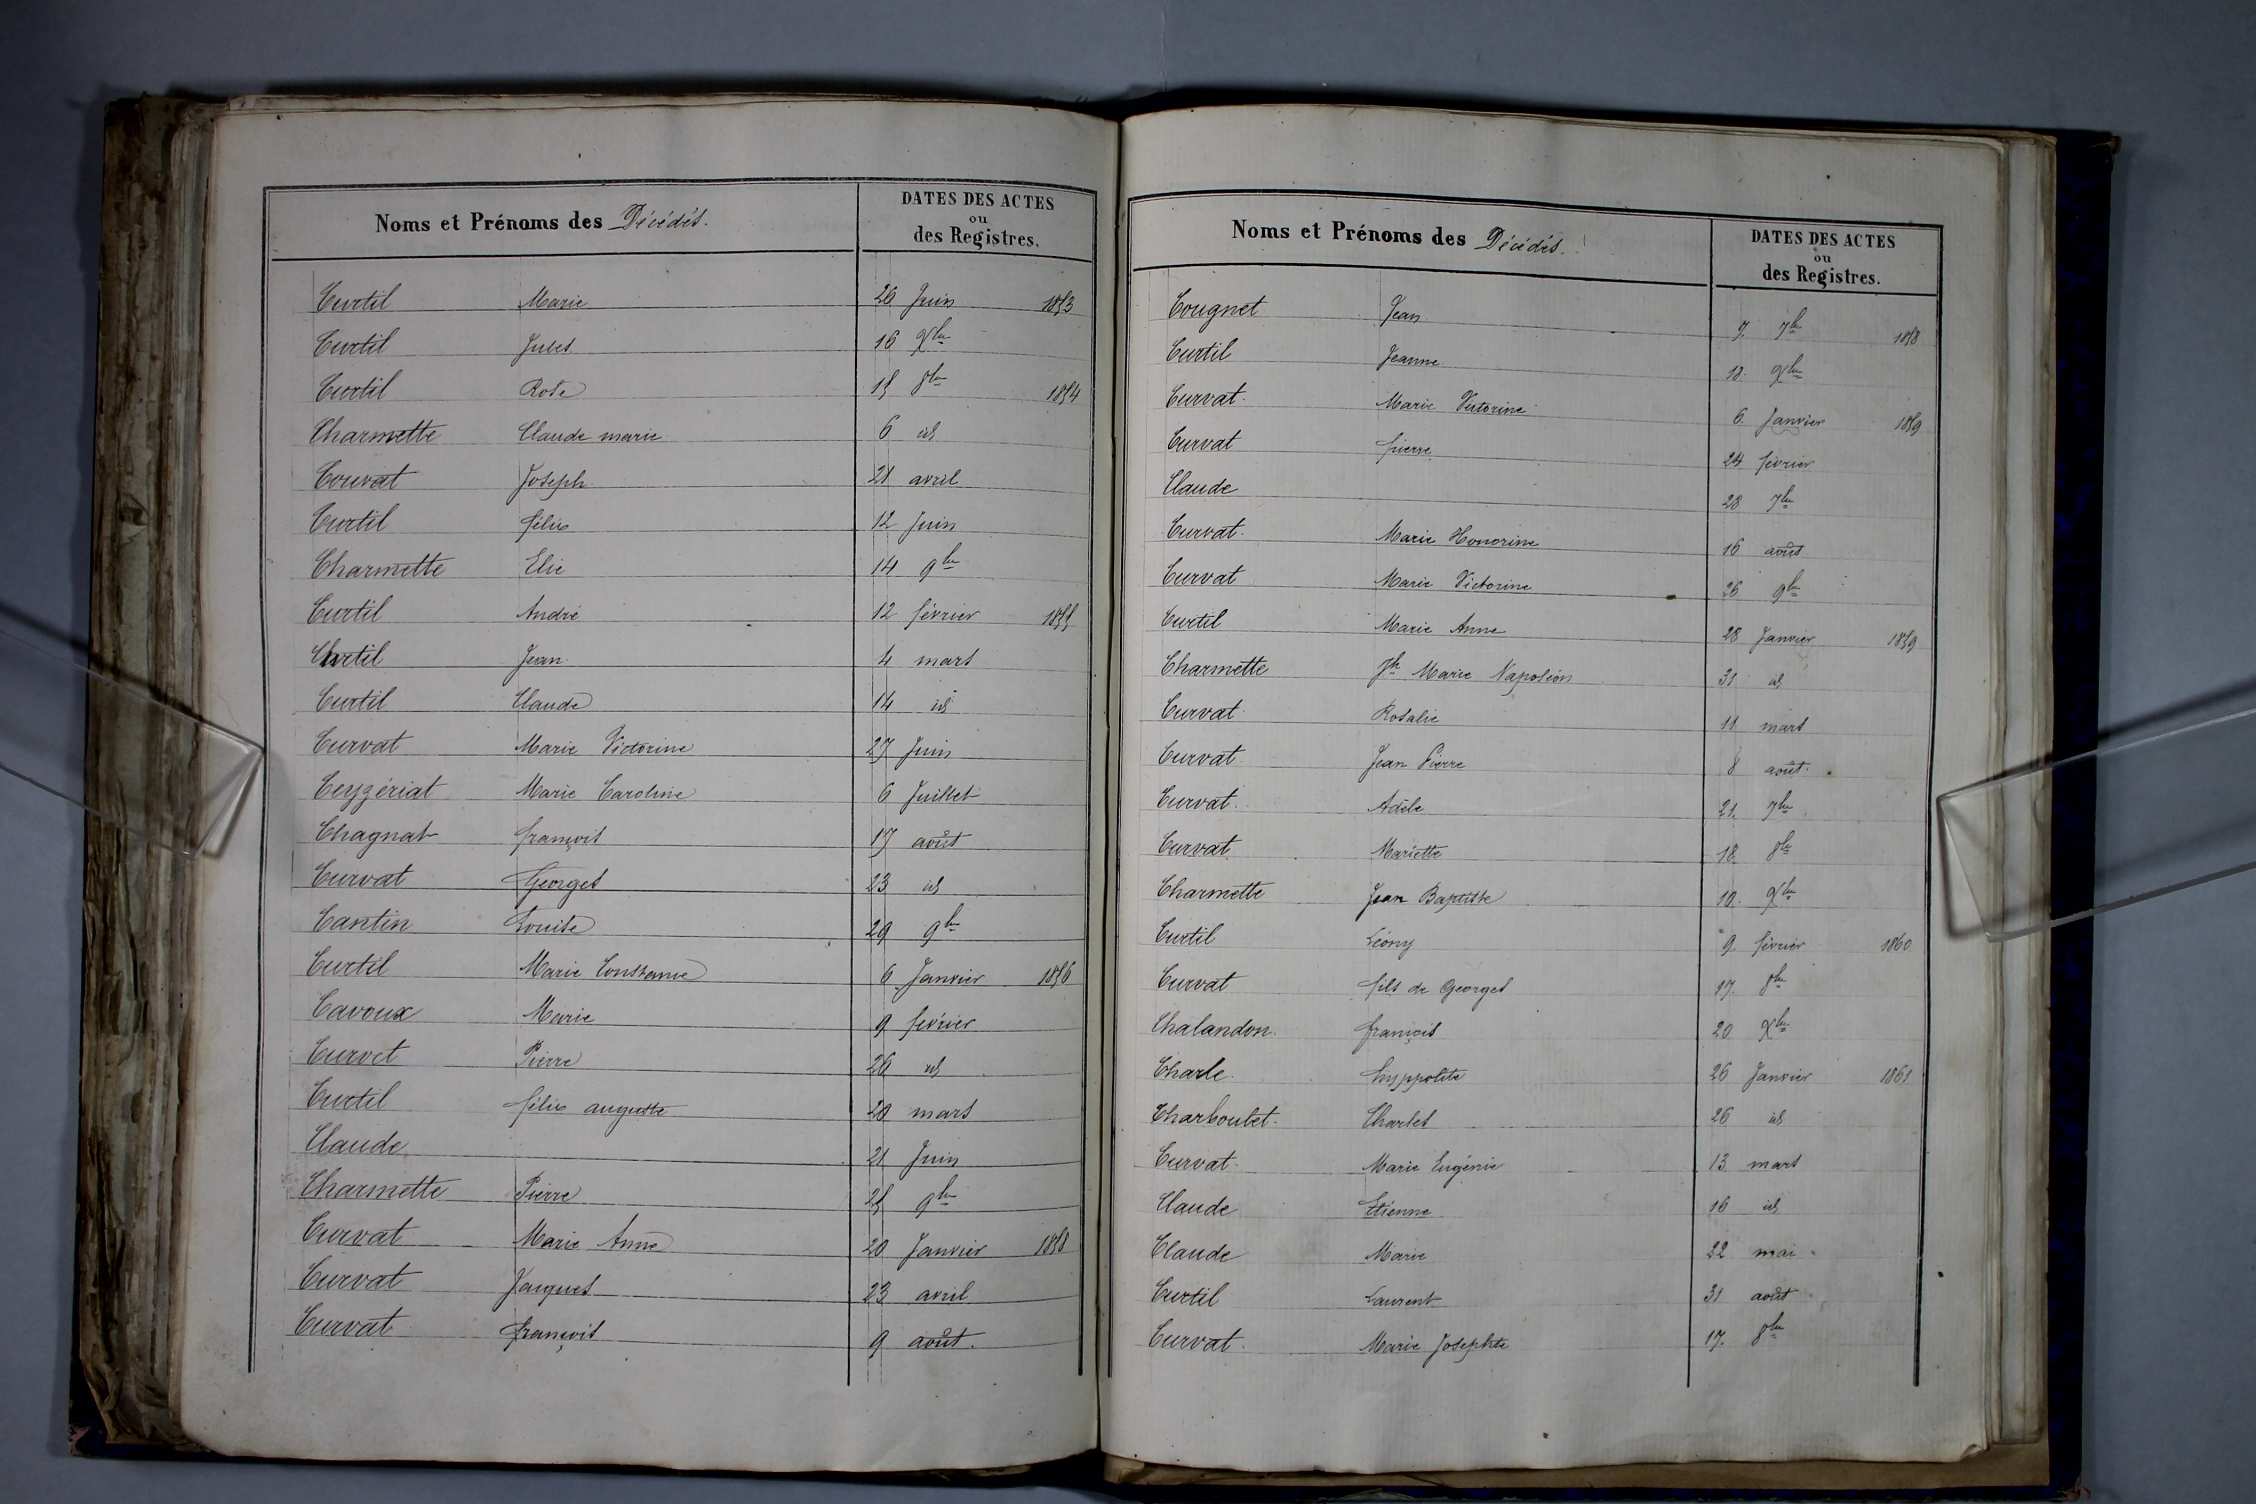 Noms et Prénoms des Décédés. DATES DES ACTES
ou
des Registres.
Curtil Marie 26 Juin 1853
Curtil Jules 16 Xbre
Curtil Rose 15 8bre 1854
Charmette Claude marie 6 id
Couvat Joseph 21 avril
Curtil félix 12 Juin
Charmette Elie 14 9bre
Curtil André 12 février 1855
Curtil Jean 4 mars
Curtil Claude 14 id
Curvat Marie Victorine 27 Juin
Ceyzériat Marie Caroline 6 Juillet
Chagnat françois 17 août
Curvat Georges 23 id
Cantin Louise 29 9bre
Curtil Marie Constance 6 Janvier 1856
Cavoux Marie 9 février
Curvet Pierre 26 id
Curtil félix auguste 20 mars
Claude 21 Juin
Charmette Pierre 25 9bre
Curvat Marie Anne 20 Janvier 1858
Curvat Jacques 23 avril
Curvat françois 9 août.
Noms et Prénoms des Décédés. DATES DES ACTES
ou
des Registres.
Cougnet Jean 7. 7bre 1858
Curtil Jeanne 18. Xbre
Curvat. Marie Victorine 6. Janvier 1859
Curvat pierre 24 février
Claude 28 7bre
Curvat. Marie Honorine 16 août
Curvat Marie Victorine 26 9bre
Curtil Marie Anne 28 Janvier 1859
Charmette Jh Marie Napoléon 31 id
Curvat Rosalie 11 mars
Curvat Jean Pierre 8 août.
Curvat. Adèle 21. 7bre
Curvat Mariette 18. 8bre
Charmette Jean Baptiste 10. Xbre
Curtil Léony 9. février 1860
Curvat fils de Georges 17. 8bre
Chalandon. françois 20 Xbre
Charle. hyppolite 26 Janvier 1861
Charboulet. Charles 26 id
Curvat. Marie Eugénie 13 mars
Claude Etienne 16 id
Claude Marie 22 mai
Curtil Laurent 31 août
Curvat. Marie Josephte 17. 8bre